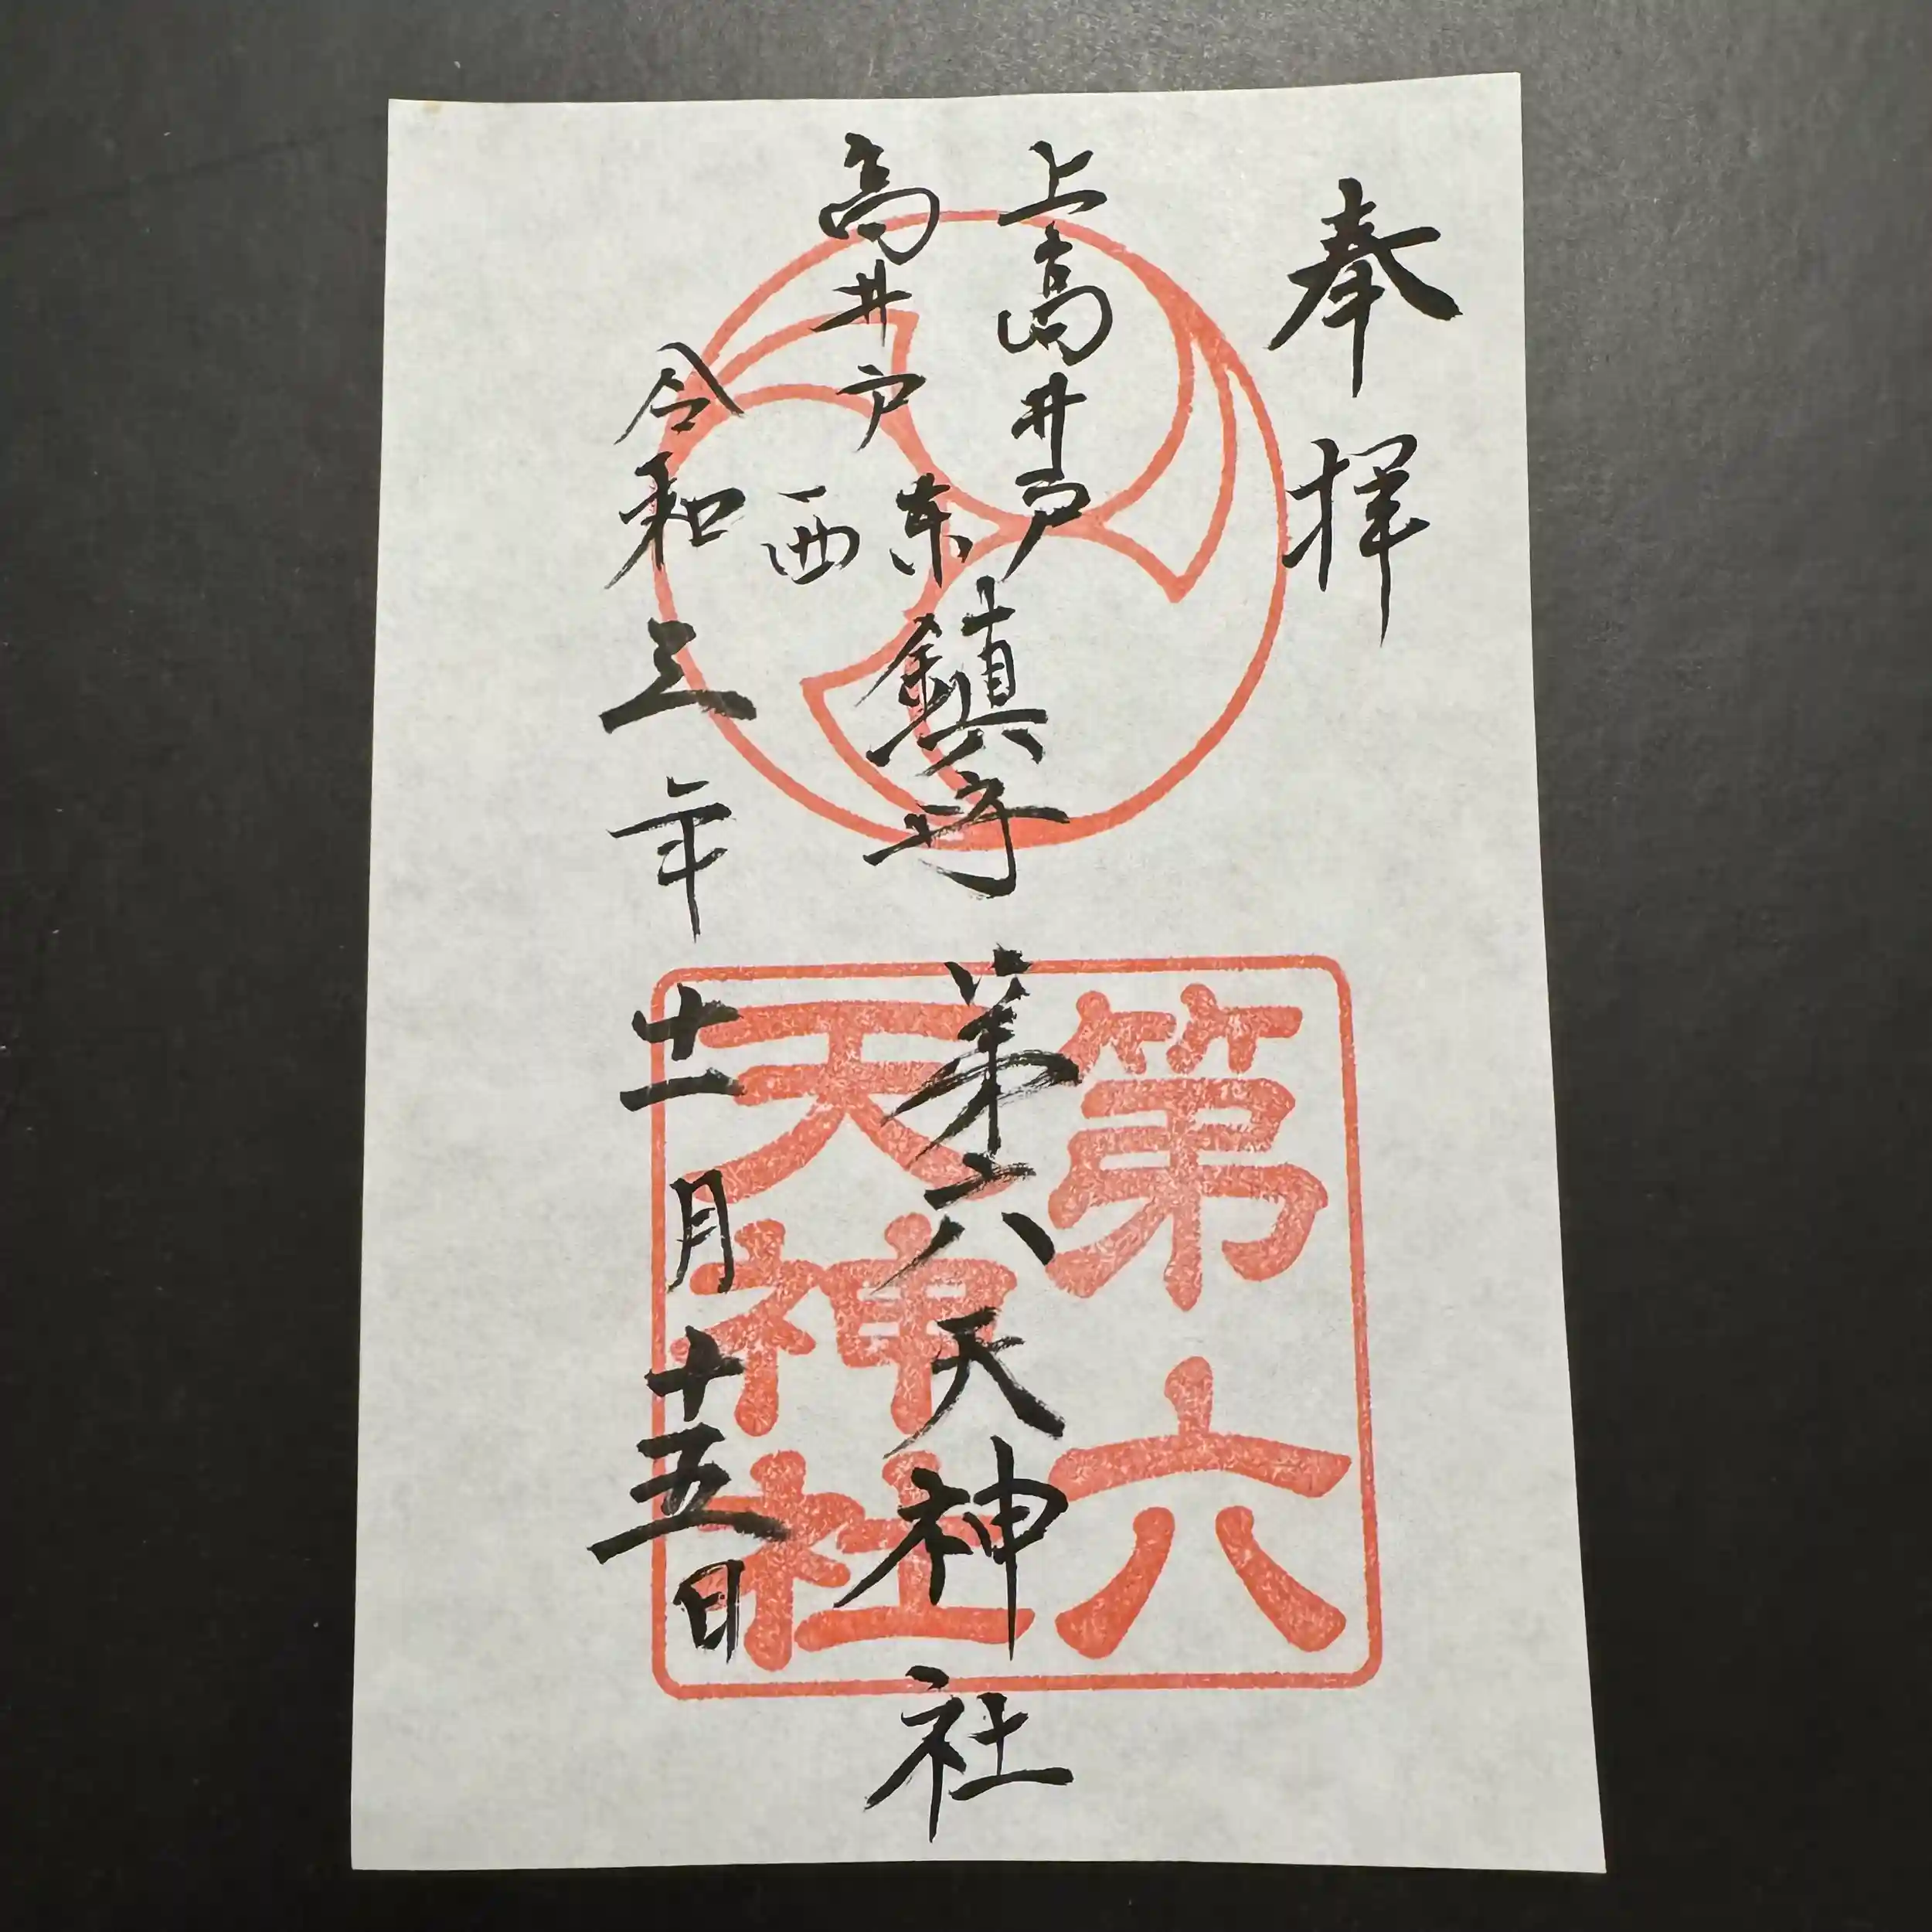 奉拝
上高井戸
高井戸
東西
鎮守
第六天神社
令和三年十一月十五日
第六
天神社